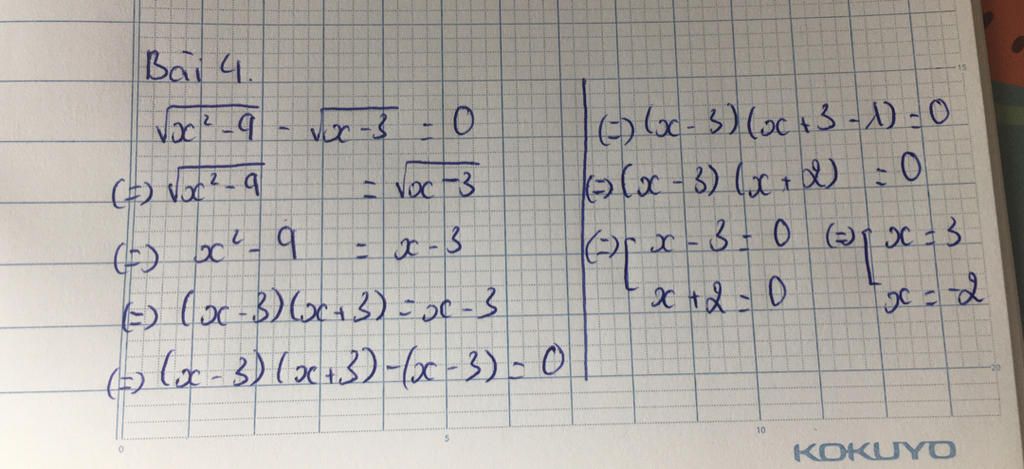 Bài 4.
√(x² - 9) - √(x - 3) = 0
(=) √(x² - 9) = √(x - 3)
(=) x² - 9 = x - 3
(=) (x - 3)(x + 3) = x - 3
(=) (x - 3)(x + 3) - (x - 3) = 0
(=) (x - 3)(x + 3 - 1) = 0
(=) (x - 3)(x + 2) = 0
(=) [ x - 3 = 0 (=) [ x = 3
x + 2 = 0 x = -2
15
20
0 5 10
KOKUYO